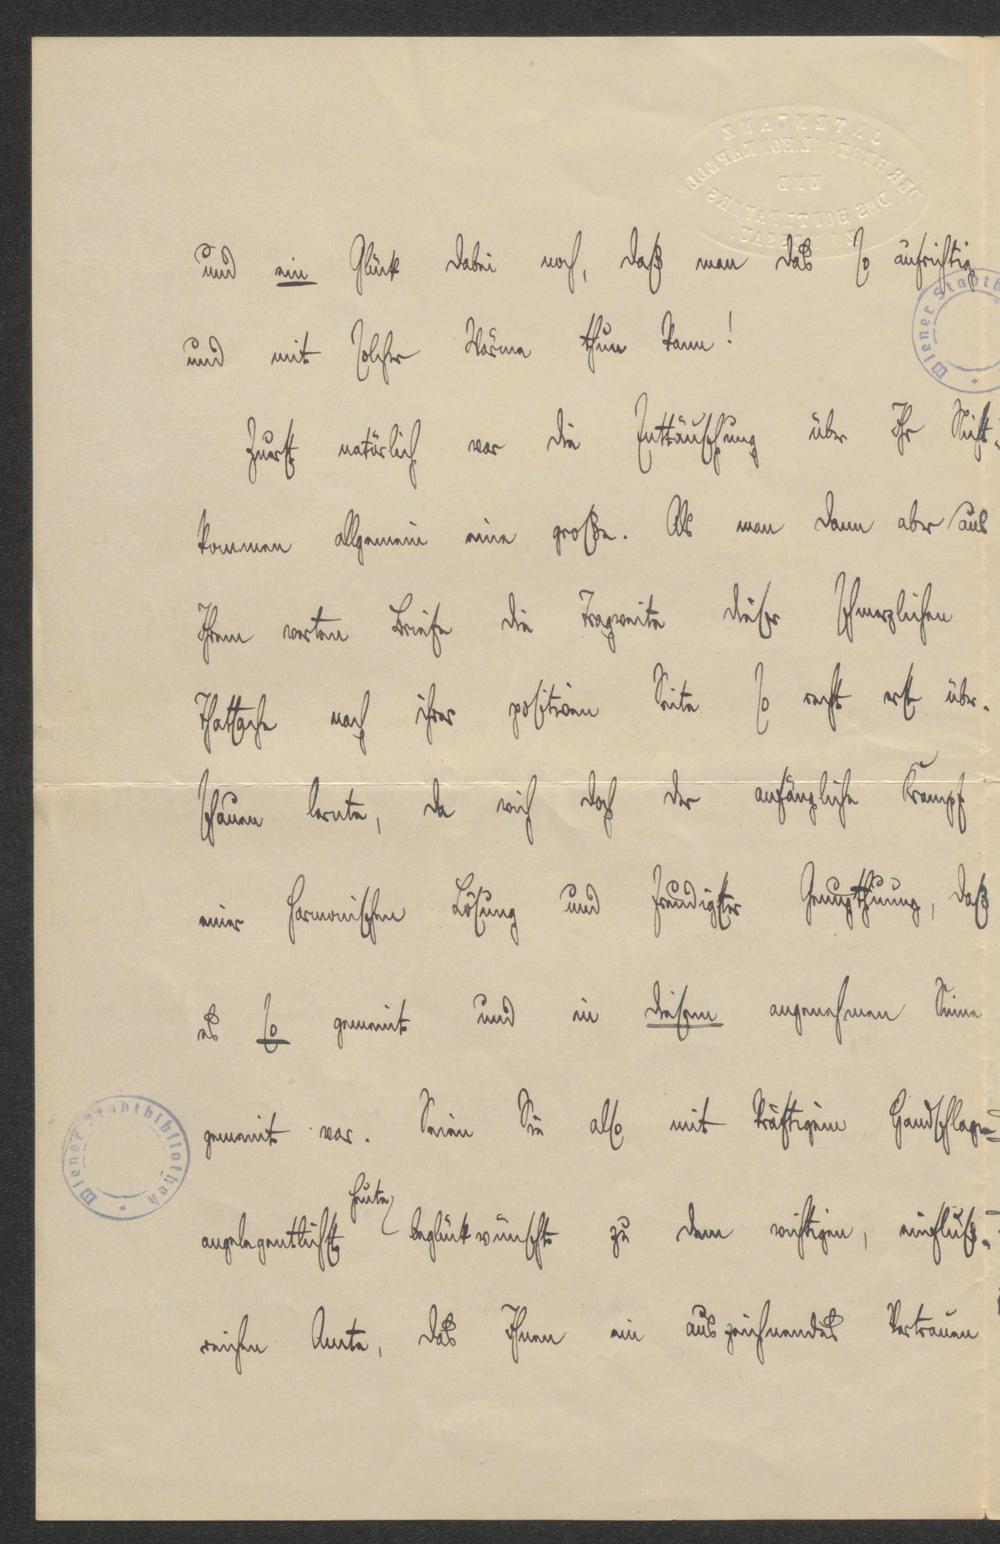 und ein Glück dabei noch, daß man das so aufrichtig
und mit solcher Wärme thun kann!
Zuerst natürlich war die Enttäuschung über Ihr Nicht-
kommen allgemein eine große. Als man dann aber aus
Ihrem werten Briefe die Tragweite dieser schmerzlichen
Thatsache nach ihrer positiven Seite so recht erst über-
schauen lernte, da wich doch der anfängliche Krampf
einer harmonischen Lösung und freudigster Genugthuung, daß
es so gemeint und in diesem angenehmen Sinne
gemeint war. Seien Sie also mit kräftigem Handschlage
heute
angelegentlichst beglückwünscht zu dem wichtigen, einfluß-
reichen Amte, das Ihnen ein auszeichnendes Vertrauen
Wiener Stadtb
Wiener Stadtbibliothek
INTENDANZ
UND